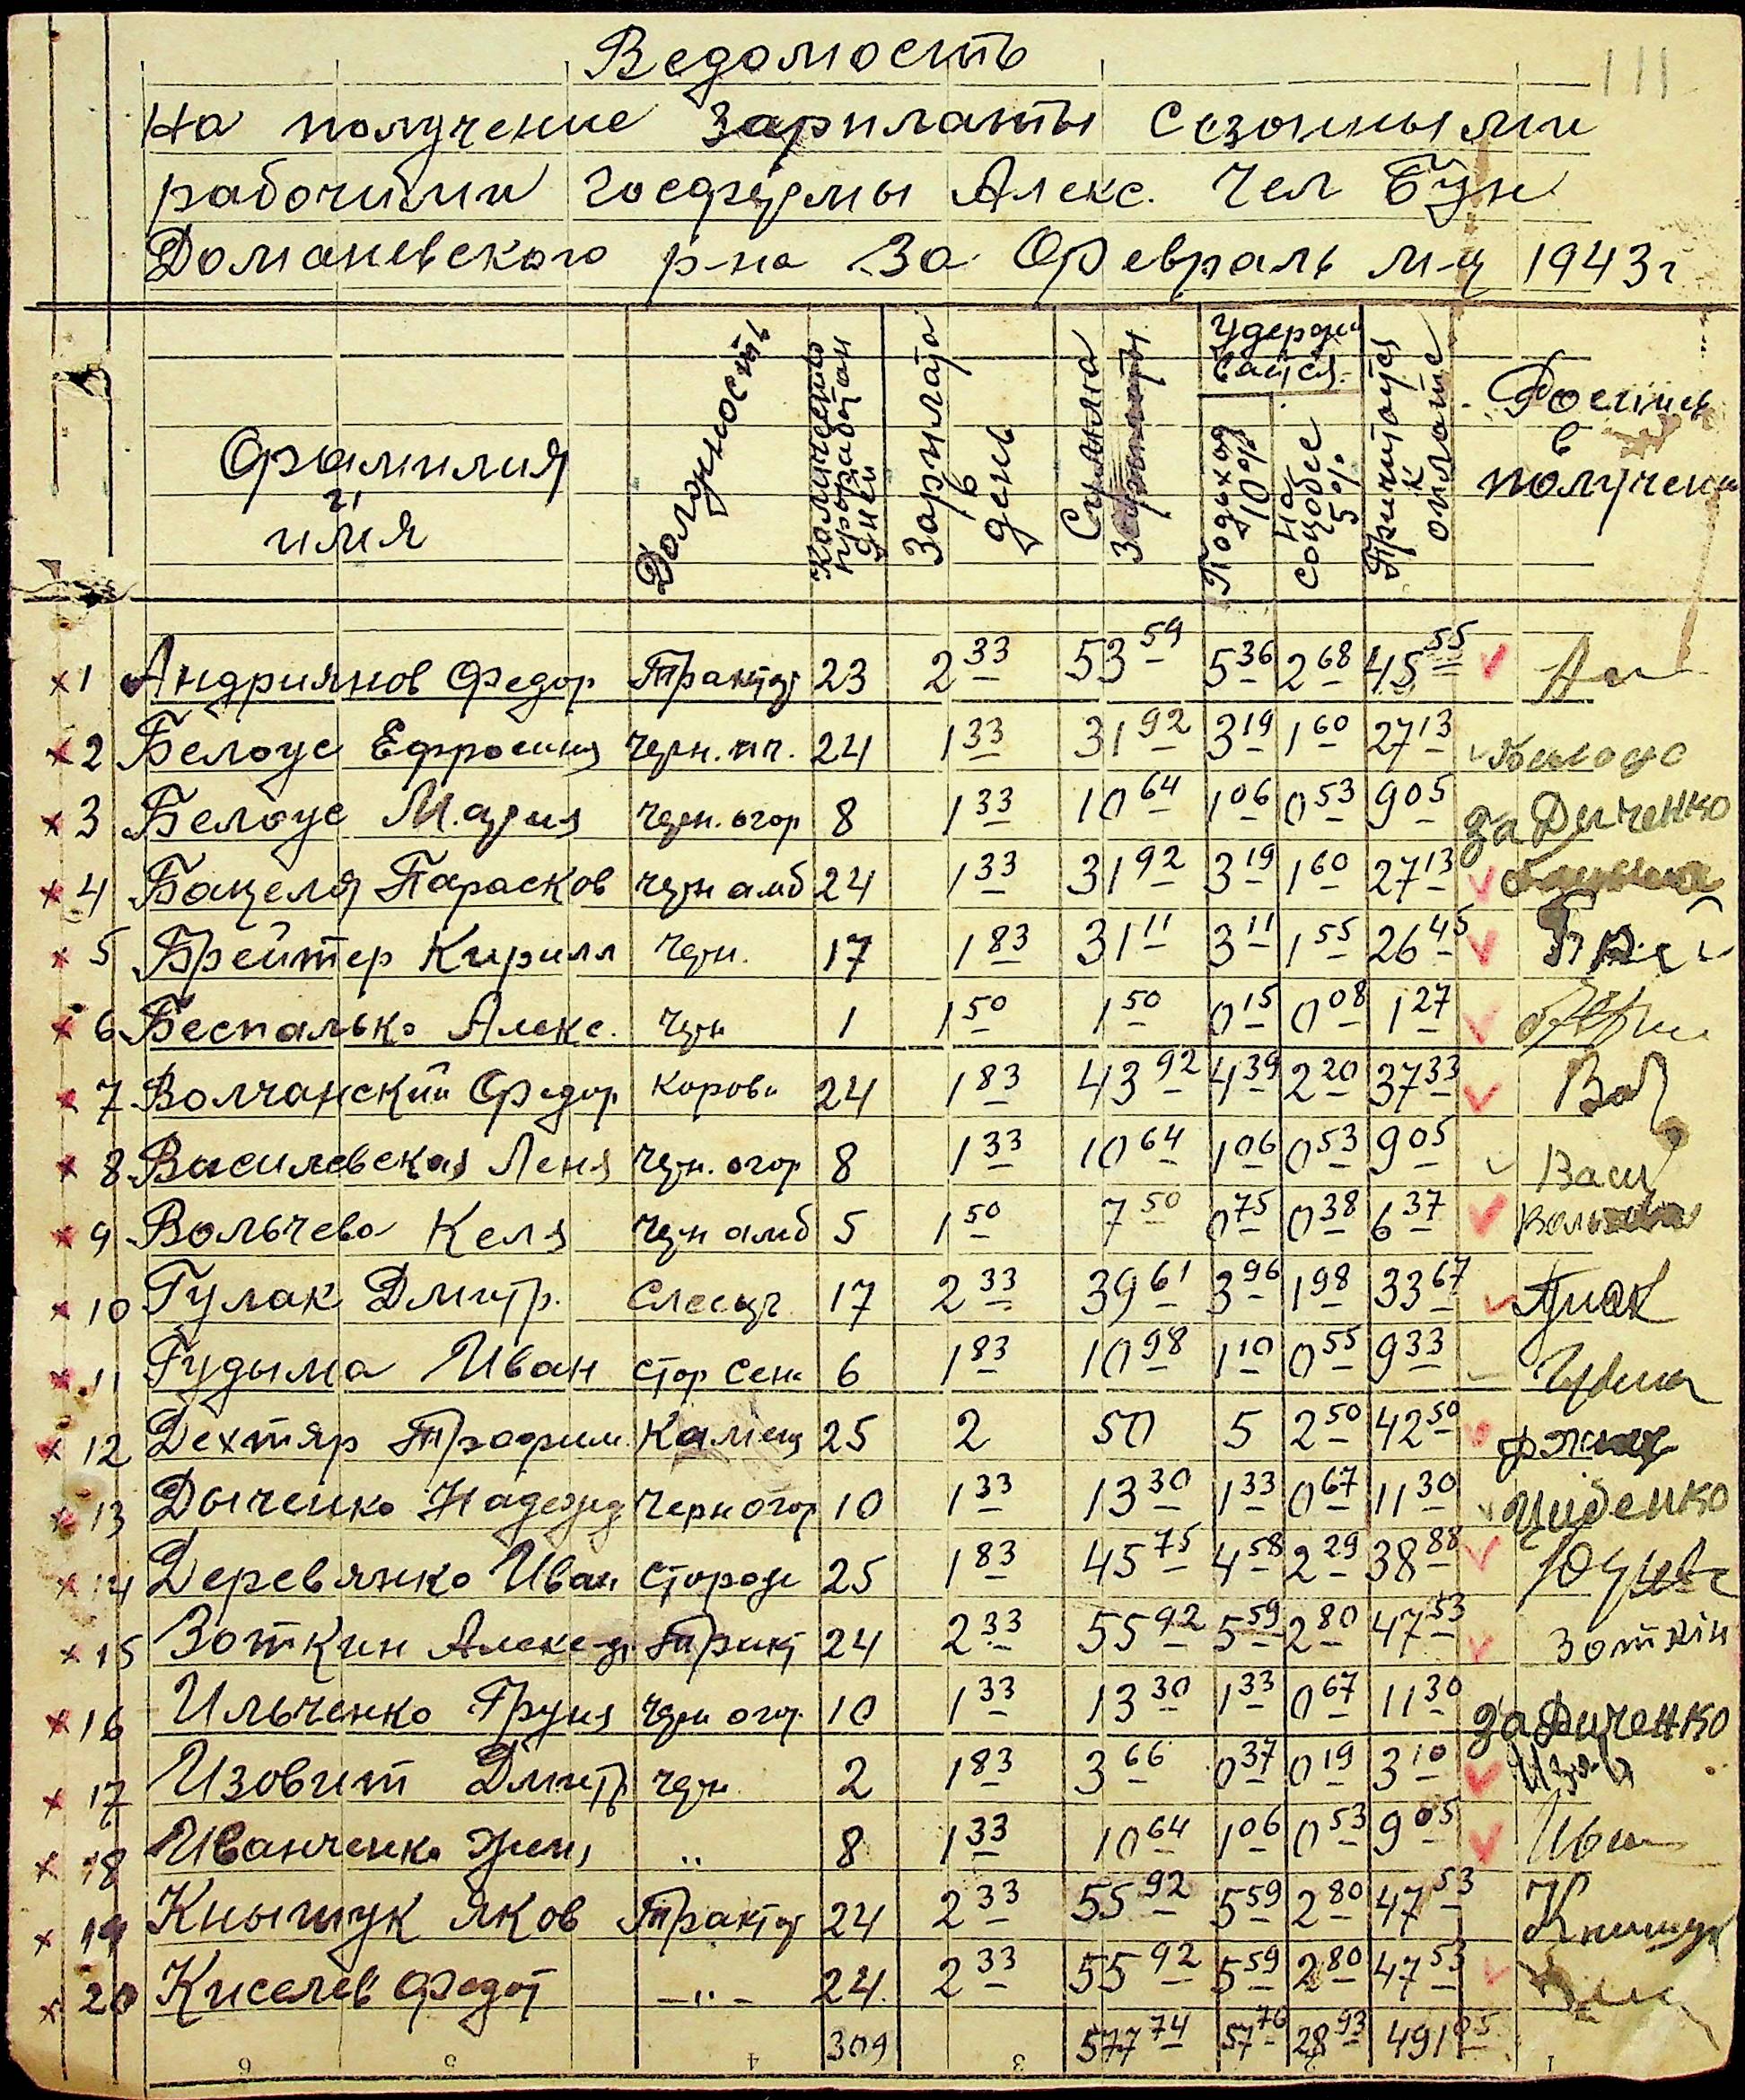 111
Ведомость
на получение зарплаты сезонными
рабочими госфермы Алекс. Чел Бун
Доманевского р-на за Февраль м-ц 1943 г
Фамилия и имя Должность Количество проработан дней Зарплата в день Сумма Зарплаты Удержи вается Подоход 10% на соцобес 5% Причитается к оплате Роспись в получении
×1 Андриянов Федор Трактор 23 2 33 53 59 5 36 2 68 45 55
×2 Белоус Ефросиния черн. ип. 24 1 33 31 92 3 19 1 60 27 13 Билоус
×3 Белоус Мария черн. огор 8 1 33 10 64 1 06 0 53 9 05 за Диченко
×4 Бацеля Парасков черн амб 24 1 33 31 92 3 19 1 60 27 13
×5 Брейтер Кирилл черн. 17 1 83 31 11 3 11 1 55 26 45
×6 Беспалько Алекс. черн 1 1 50 1 50 0 15 0 08 1 27
×7 Волчанский Федор коровн 24 1 83 43 92 4 39 2 20 37 33 Вол
×8 Василевская Леня черн. огор 8 1 33 10 64 1 06 0 53 9 05 Васи
×9 Вольчева Келя черн амб 5 1 50 7 50 0 75 0 38 6 37
×10 Гулак Дмитр. Слесар 17 2 33 39 61 3 96 1 98 33 67 Гулак
×11 Гудыма Иван стор Сена 6 1 83 10 98 1 10 0 55 9 33
×12 Дехтяр Трофим. Каменщ 25 2 50 5 2 50 42 50
×13 Дыченко Надежд Черн огор 10 1 33 13 30 1 33 0 67 11 30
×14 Деревянко Иван Сторож 25 1 83 45 75 4 58 2 29 38 88
×15 Зоткин Александ Тракт 24 2 33 55 92 5 59 2 80 47 53 Зоткін
×16 Ильченко Груня черн огор. 10 1 33 13 30 1 33 0 67 11 30 за Диченко
×17 Изовит Дмитр черн. 2 1 83 3 66 0 37 0 19 3 10
×18 Иванченко Жен, „ 8 1 33 10 64 1 06 0 53 9 05 Иван
×19 Кнышук Яков Трактор 24 2 33 55 92 5 59 2 80 47 53 Книшук
×20 Киселев Федот —„— 24. 2 33 55 92 5 59 2 80 47 53
309 577 74 57 76 28 93 491 05
6 5 4 3 1